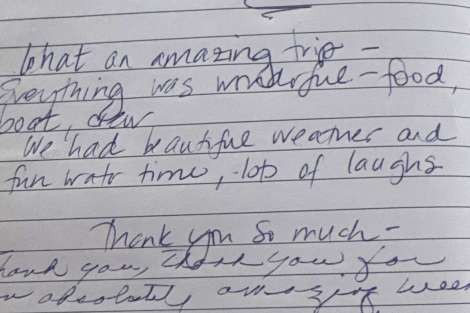 What an amazing trip -
Everything was wonderful - food,
boat, crew
We had beautiful weather and
fun watr time, lots of laughs
Thank you so much -
hank you, thank you for
n absolutely amazing week